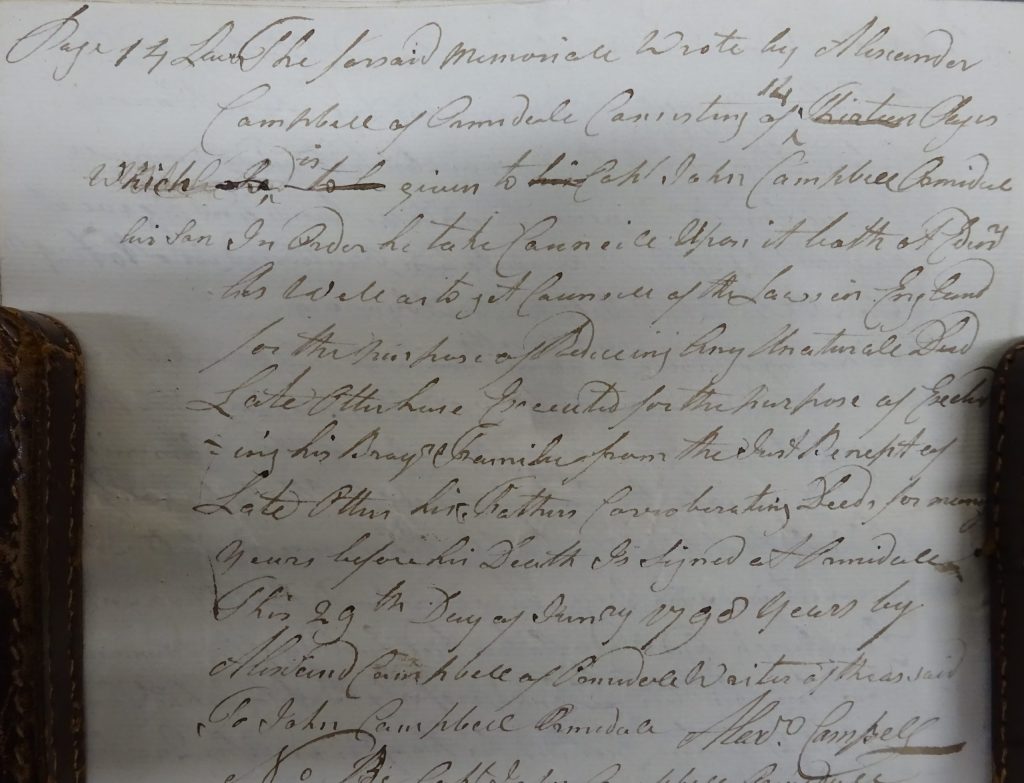 Page 14 The forsaid Memoriall Wrote by Alexander
Campbell of Ormidale Consisting of 14 Thirteen Pages
Which is to be given to his Capt John Campbell Ormidale
his Son In Order he take Councill Upon it both at Edinr
As Well as to get Counsell of the Laws in England
for the purpose of Reduceing Any Unaturall Deed
Late Otterhuse Executed for the purpose of
=ing his Family from the Just Benefit of
Late Otters his Fathers Corroberating Deeds for many
Years before his Death Is Signed at Ormidale
This 29th Day of 1798 Years by
Campbell of Ormidale Writer of the as said
To John Campbell Ormidale Alexr. Campbell
No Be Capt John Campbell